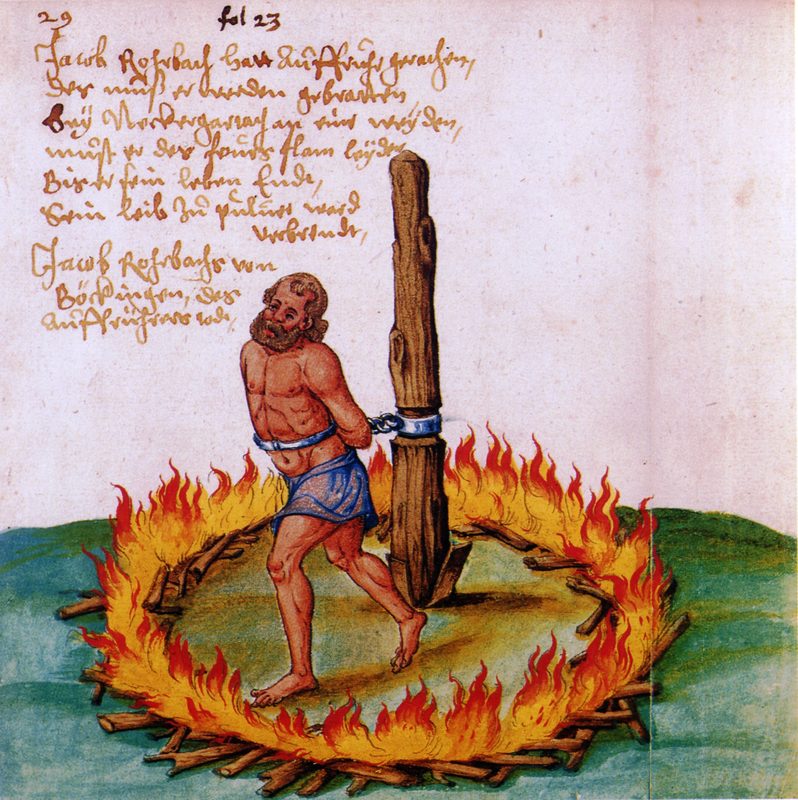 29 fol 23
Jacob Rohrbach hatt Auffruhr gerachen,
des muß er werden gebratten
Bey Neckergartach an eine weyden,
must er des feurs flam leyden
Bis er sein leben Endt,
Sein leib zu puluer ward
verbrendt,
Jacob Rohrbachs von
Böckingen, des
Auffrührers todt,